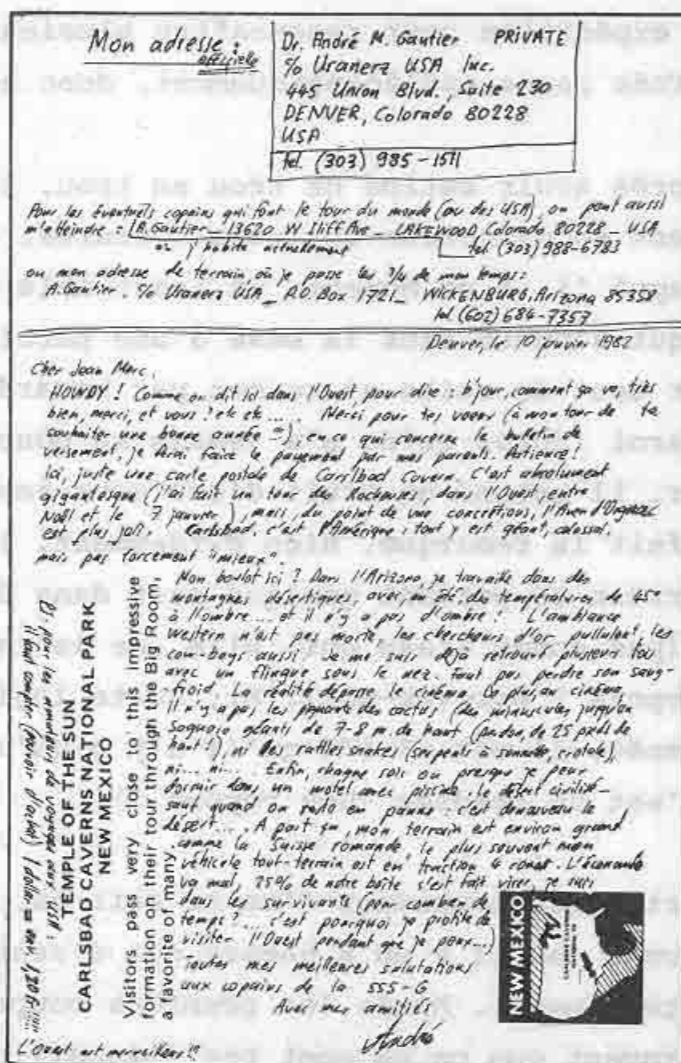 Mon adresse :
officielle
Dr. André M. Gautier PRIVATE
c/o Uranerz USA Inc.
445 Union Blvd., Suite 230
DENVER, Colorado 80228
USA
tel. (303) 985-1511
Pour les éventuels copains qui font le tour du monde (ou des USA), on peut aussi
m'atteindre : A. Gautier _ 13620 W Iliff Ave _ LAKEWOOD, Colorado 80228 _ USA
où j'habite actuellement tel. (303) 988-6783
ou mon adresse de terrain, où je passe les 3/4 de mon temps :
A. Gautier. c/o Uranerz USA _ P.O. Box 1721 _ WICKENBURG, Arizona 85358
tel (602) 684-7357
Denver, le 10 janvier 1982
Cher Jean Marc,
HOWDY ! Comme on dit ici dans l'Ouest, pour dire : b'jour, comment ça va, très
bien, merci, et vous ? etc etc..... Merci pour tes voeux (à mon tour de te
souhaiter une bonne année); en ce qui concerne le bulletin de
versement, je ferai faire le payement par mes parents. Patience !
Ici, juste une carte postale de Carlsbad Cavern. C'est absolument
gigantesque (j'ai fait un tour de Rocheuses, dans l'Ouest, entre
Noël et le 7 janvier), mais, du point de vue concrétions, l'Aven d'Orgnac
est plus joli. Carlsbad, c'est l'Amérique : tout y est géant, colossal,
mais pas forcement "mieux".
Mon boulot ici ? Dans l'Arizona, je travaille dans des
montagnes désertiques, avec, en été, des températures de 45°
à l'ombre... et il n'y a pas d'ombre ! L'ambiance
western n'est pas morte, les chercheurs d'or pullulent, les
cow-boys aussi. Je me suis déjà retrouvé plusieurs fois
avec un flingue sous le nez. Faut pas perdre son sang-
froid. La réalité dépasse le cinéma. De plus, au cinéma,
il n'y a pas les piquants des cactus (des minuscules jusqu'au
Saguaro géants de 7-8 m. de haut (pardon, de 25 pieds de
haut !), ni des rattles snakes (serpents à sonnette, crotale),
ni... ni... Enfin, chaque soir ou presque je peux
dormir dans un motel avec piscine. Le désert civilisé -
sauf quand on reste en panne : c'est de nouveau le
désert.... A part ça, mon terrain est environ grand
comme la Suisse romande, le plus souvent mon
véhicule tout-terrain est en traction 4 roues. L'économie
va mal, 25% de notre boîte s'est fait virer, je suis
dans les survivants (pour combien de
temps ?... c'est pourquoi je profite de
visiter l'Ouest pendant que je peux...)
Toutes mes meilleures salutations
aux copains de la SSS-G
Avec mes amitiés
André
TEMPLE OF THE SUN
CARLSBAD CAVERNS NATIONAL PARK
NEW MEXICO
Visitors pass very close to this impressive
formation on their tour through the Big Room,
a favorite of many.
pour les amateurs de voyages aux USA :
il faut compter (pouvoir d'achat) 1 dollar = env. 1,20 fr
L'Ouest est merveilleux !!
NEW MEXICO
CARLSBAD CAVERNS